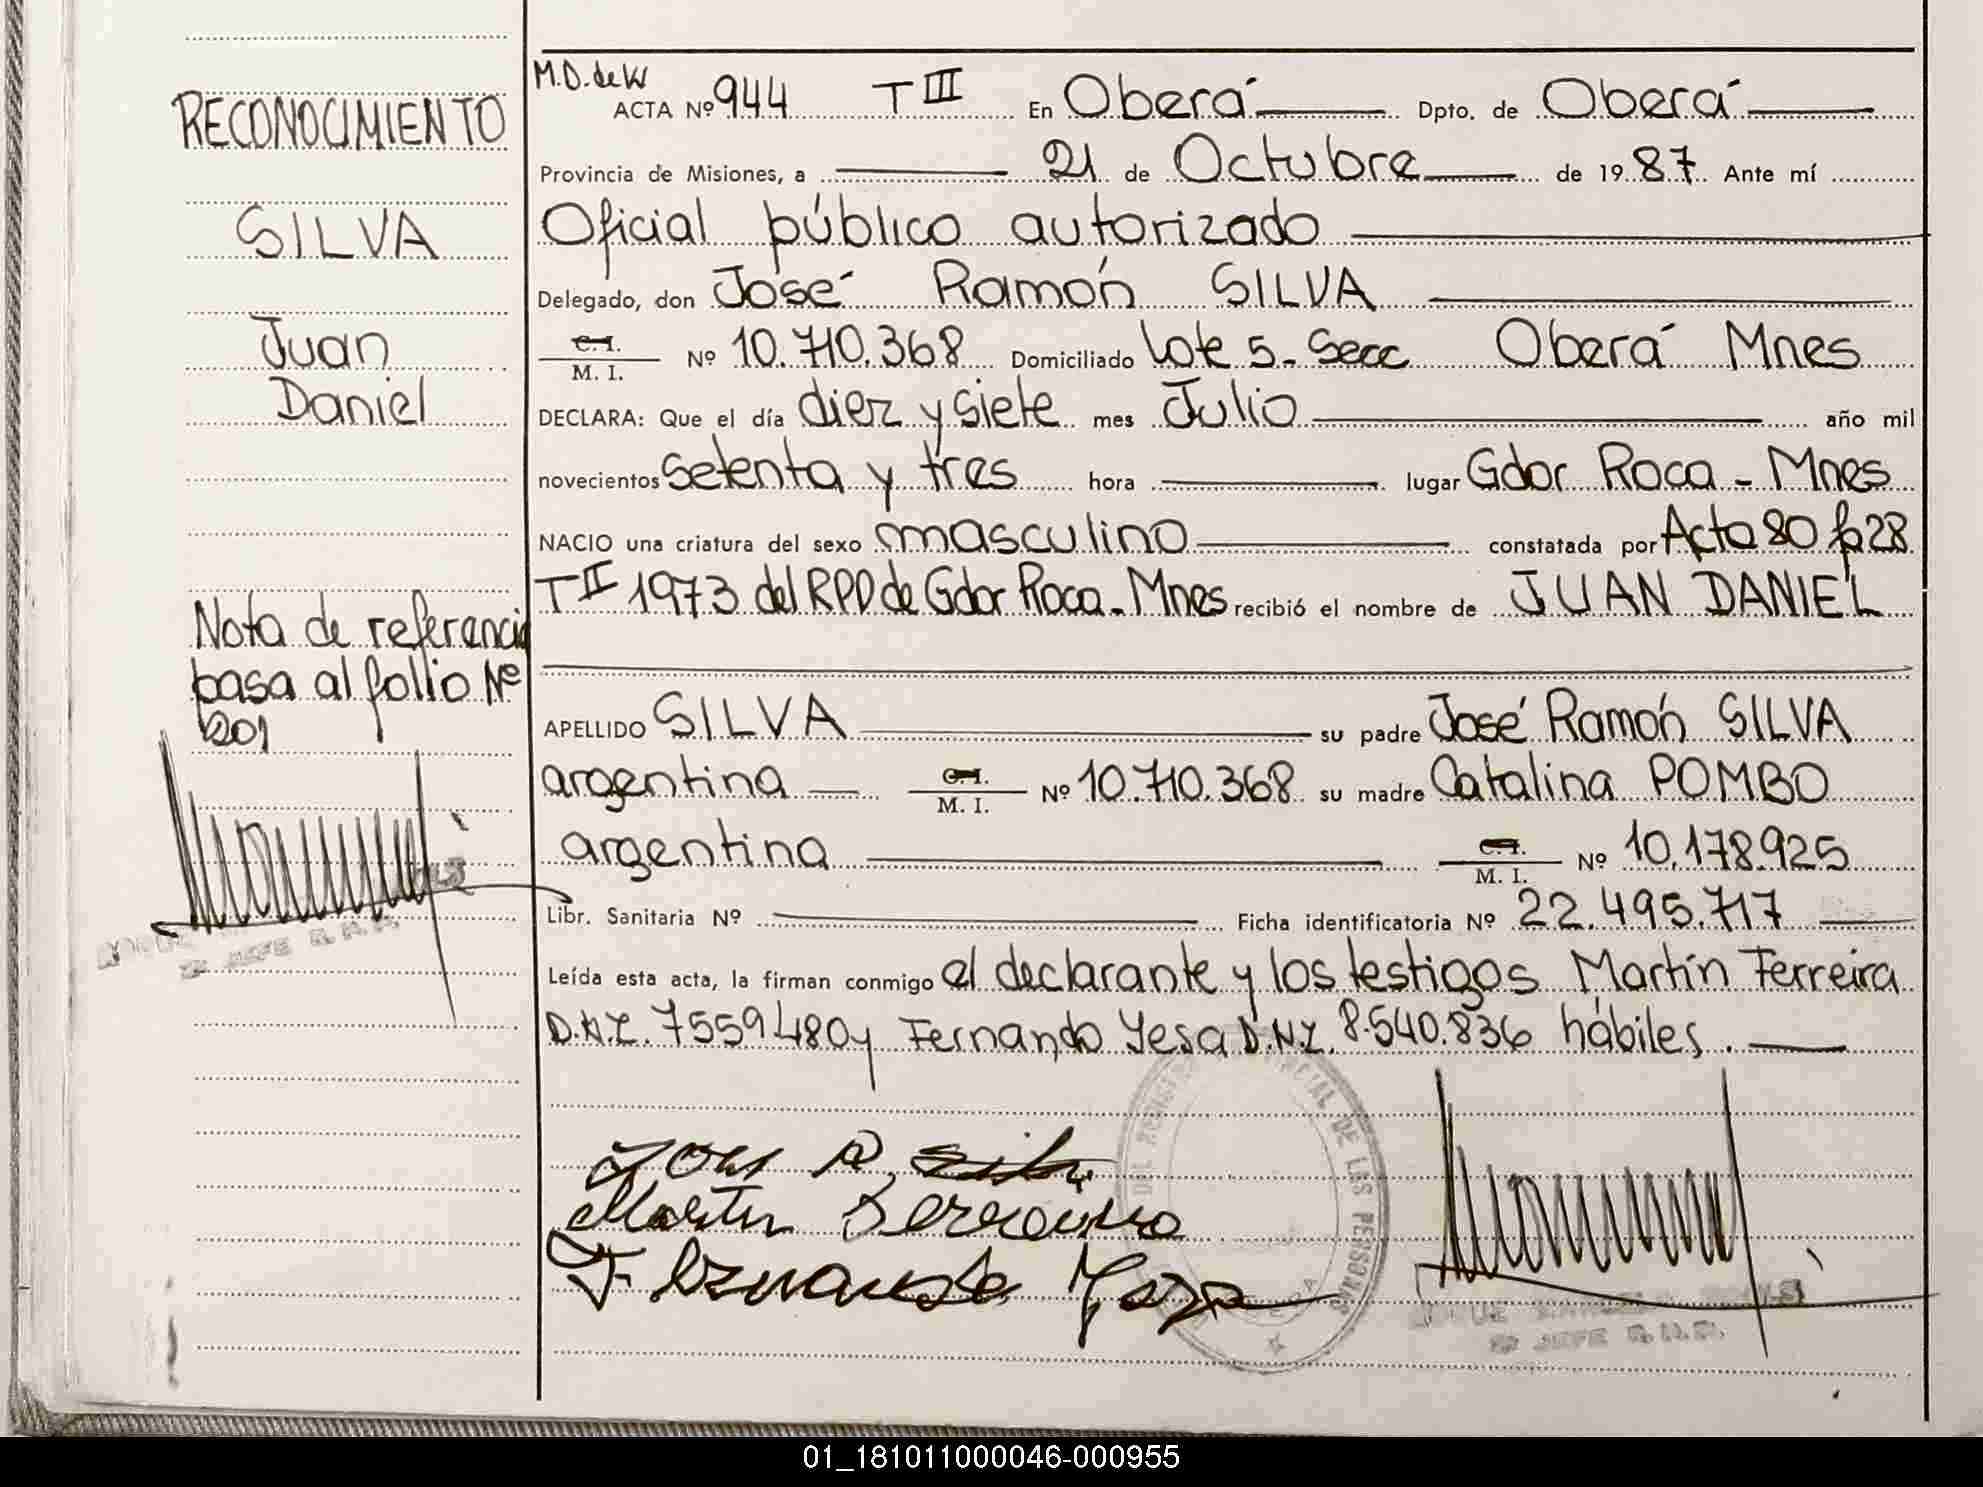 RECONOCIMIENTO
SILVA
Juan
Daniel
Nota de referencia
pasa al folio Nº
201
2º JEFE R.P.P.
M.D. de W
ACTA Nº 944 T III En Oberá Dpto. de Oberá
Provincia de Misiones, a 21 de Octubre de 1987 Ante mí
Oficial público autorizado
Delegado, don José Ramón SILVA
C.I.
M. I. Nº 10.710.368 Domiciliado Lote 5 - Secc Oberá Mnes
DECLARA: Que el día diez y siete mes Julio año mil
novecientos setenta y tres hora lugar Gdor Roca - Mnes
NACIO una criatura del sexo masculino constatada por Acta 80 fº 28
T II 1973 del RPP de Gdor Roca - Mnes recibió el nombre de JUAN DANIEL
APELLIDO SILVA su padre José Ramón SILVA
argentina C.I.
M. I. Nº 10.710.368 su madre Catalina POMBO
argentina C.I.
M. I. Nº 10.178.925
Libr. Sanitaria Nº Ficha identificatoria Nº 22.495.717
Leída esta acta, la firman conmigo el declarante y los testigos Martín Ferreira
D.N.I. 7559480 y Fernando Yesa D.N.I. 8.540.836 hábiles.
DEL REGISTRO PROVINCIAL DE LAS PERSONAS
José R. Silva
Martin Ferreira
Fernando Yesa
2º JEFE R.P.P.
01_181011000046-000955